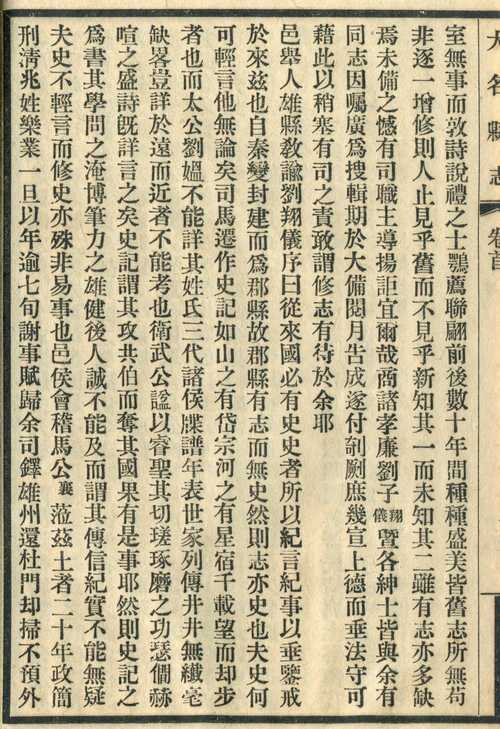 大名縣志
卷首
室無事而敦詩說禮之士鶚薦聯翩前後數十年間種種盛美皆舊志所無苟
非逐一增修則人止見乎舊而不見乎新知其一而未知其二雖有志亦多缺
焉未備之憾有司職主導揚詎宜爾哉商諸孝廉劉子翔儀曁各紳士皆與余有
同志因囑廣爲搜輯期於大備閱月告成遂付剞劂庶幾宣上德而垂法守可
藉此以稍塞有司之責敢謂修志有待於余耶
邑舉人雄縣敎諭劉翔儀序曰從來國必有史史者所以紀言紀事以垂鑒戒
於來兹也自秦變封建而爲郡縣故郡縣有志而無史然則志亦史也夫史何
可輕言他無論矣司馬遷作史記如山之有岱宗河之有星宿千載望而却步
者也而太公劉媼不能詳其姓氏三代諸侯牒譜年表世家列傳井井無纎毫
缺畧豈詳於遠而近者不能考也衛武公諡以睿聖其切瑳琢磨之功瑟僩赫
喧之盛詩旣詳言之矣史記謂其攻共伯而奪其國果有是事耶然則史記之
爲書其學問之淹博筆力之雄健後人誠不能及而謂其傳信紀實不能無疑
夫史不輕言而修史亦殊非易事也邑侯會稽馬公襄蒞兹土者二十年政簡
刑淸兆姓樂業一旦以年逾七旬謝事賦歸余司鐸雄州還杜門却掃不預外